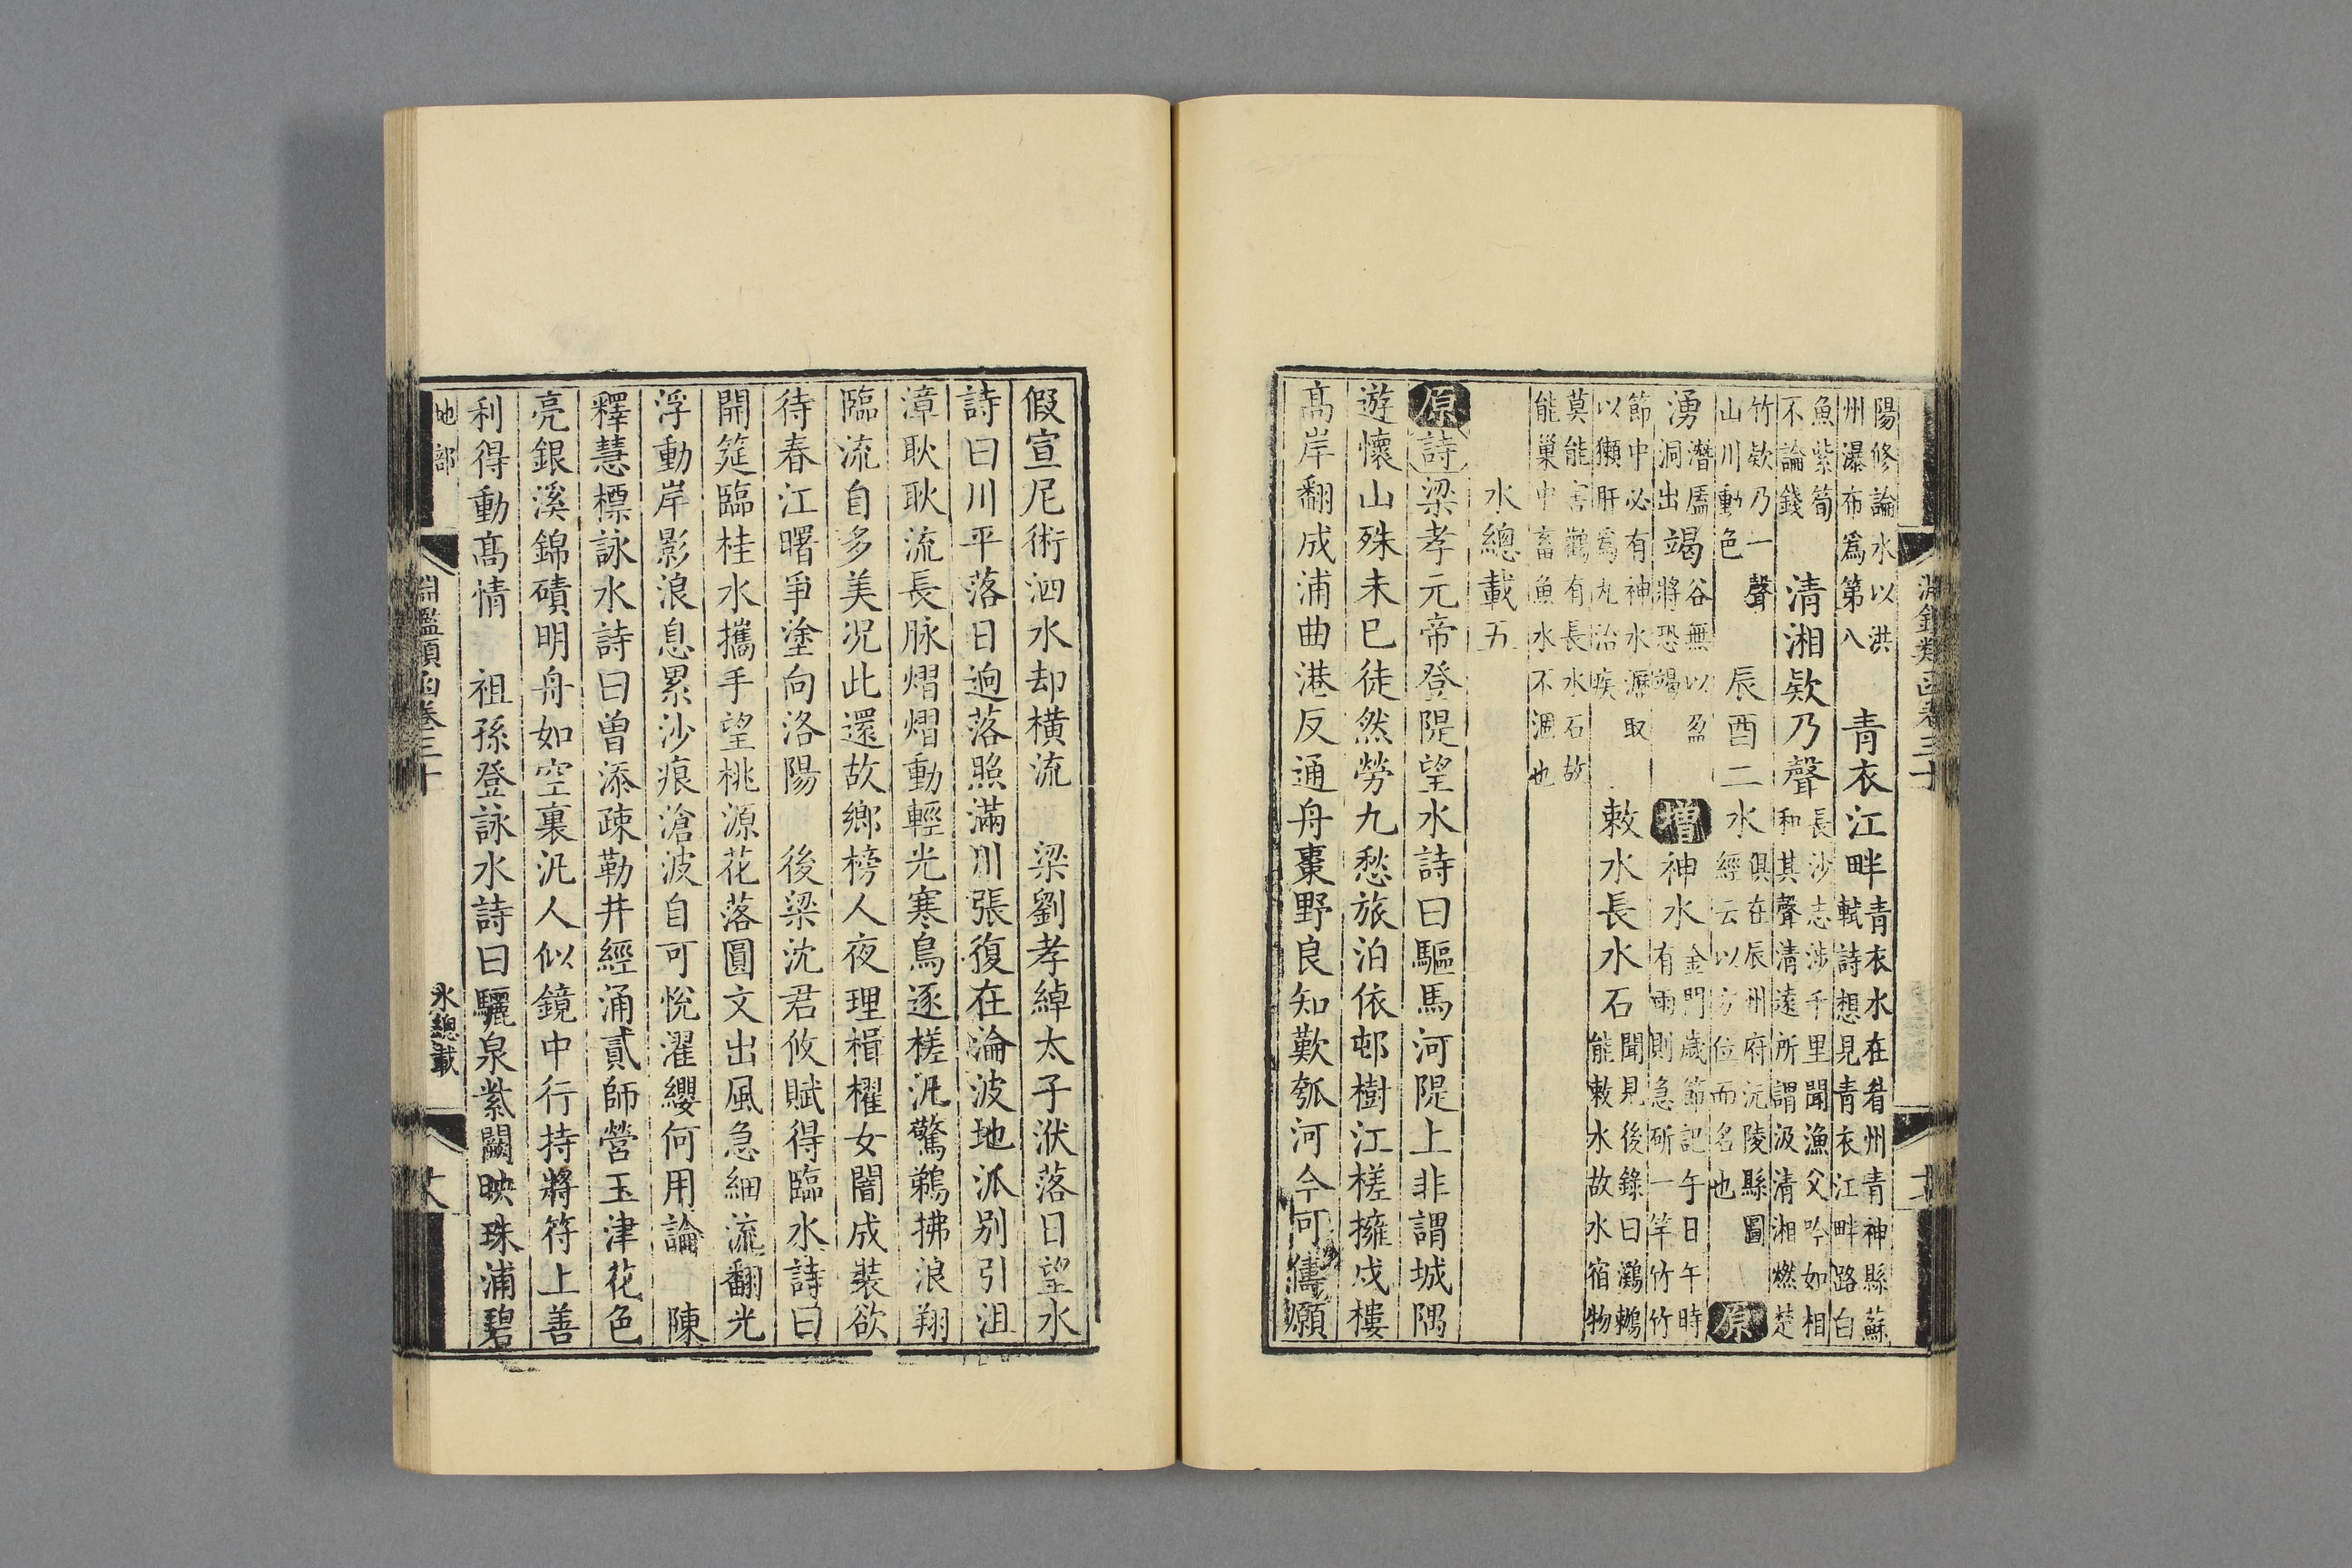 陽修論水以洪
州瀑布爲第八
青衣江畔
青衣水在眉州青神縣蘇
軾詩想見青衣江畔路白
魚紫筍
不論錢
清湘欵乃聲
長沙志涉千里聞漁父吟如相
和其聲清遠所謂汲清湘燃楚
竹欵乃一聲
山川動色
辰酉二水
俱在辰州府沅陵縣圖
經云以方位而名也
原
湧
潛馮
洞出
竭
谷無以盈
將恐竭
增
神水
金門歲節記午日午時
有雨則急斫一竿竹竹
節中必有神水瀝取
以獺肝爲丸治疾
敕水長水石
聞見後錄曰鸂鶒
能敕水故水宿物
莫能害鸛有長水石故
能巢中畜魚水不涸也
水總載五
原詩梁孝元帝登隄望水詩曰驅馬河隄上非謂城隅
遊懷山殊未巳徒然勞九愁旅泊依邨樹江槎擁戍樓
高岸翻成浦曲港反通舟棗野良知歎瓠河今可儔願
淵鑑類函卷三十
假宣尼術泗水却橫流 梁劉孝綽太子洑落日望水
詩曰川平落日逈落照滿川張復在淪波地派别引沮
漳耿耿流長脉熠熠動輕光寒鳥逐槎汎驚鵜拂浪翔
臨流自多美況此還故鄉榜人夜理楫櫂女闇成裝欲
待春江曙爭塗向洛陽 後梁沈君攸賦得臨水詩曰
開筵臨桂水攜手望桃源花落圓文出風急細流翻光
浮動岸影浪息累沙痕滄波自可悅濯纓何用論 陳
釋慧標詠水詩曰曾添疎勒井經涌貳師營玉津花色
亮銀溪錦磧明舟如空裏汎人似鏡中行持將符上善
利得動高情 祖孫登詠水詩曰驪泉紫闕映珠浦碧
地部
淵鑑類函卷三十
水總載